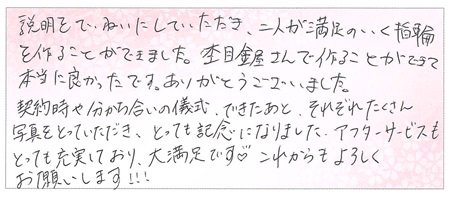 説明をていねいにしていただき、二人が満足のいく指輪
を作ることができました。杢目金屋さんで作ることができて
本当に良かったです。ありがとうございました。
契約時や分かち合いの儀式、できたあと、それぞれたくさん
写真をとっていただき、とっても記念になりました、アフターサービスも
とっても充実しており、大満足です♡ これからもよろしく
お願いします!!!